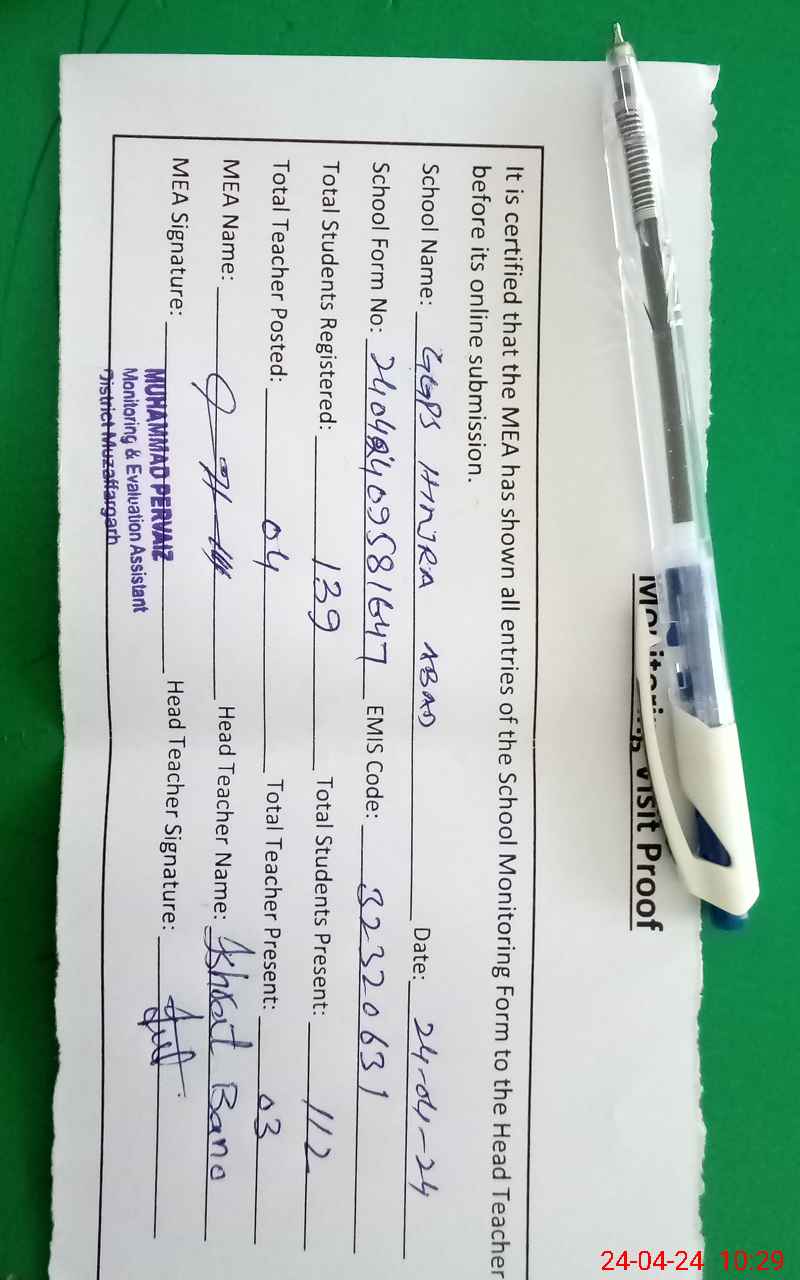 Monitoring Visit Proof
It is certified that the MEA has shown all entries of the School Monitoring Form to the Head Teacher
before its online submission.
School Name: GGPS HINJRA ABAD Date: 24-04-24
School Form No: 24042409581647 EMIS Code: 32320631
Total Students Registered: 139 Total Students Present: 112
Total Teacher Posted: 04 Total Teacher Present: 03
MEA Name: Head Teacher Name: Ishrat Bano
MEA Signature: Head Teacher Signature:
MUHAMMAD PERVAIZ
Monitoring & Evaluation Assistant
District Muzaffargarh
24-04-24 10:29